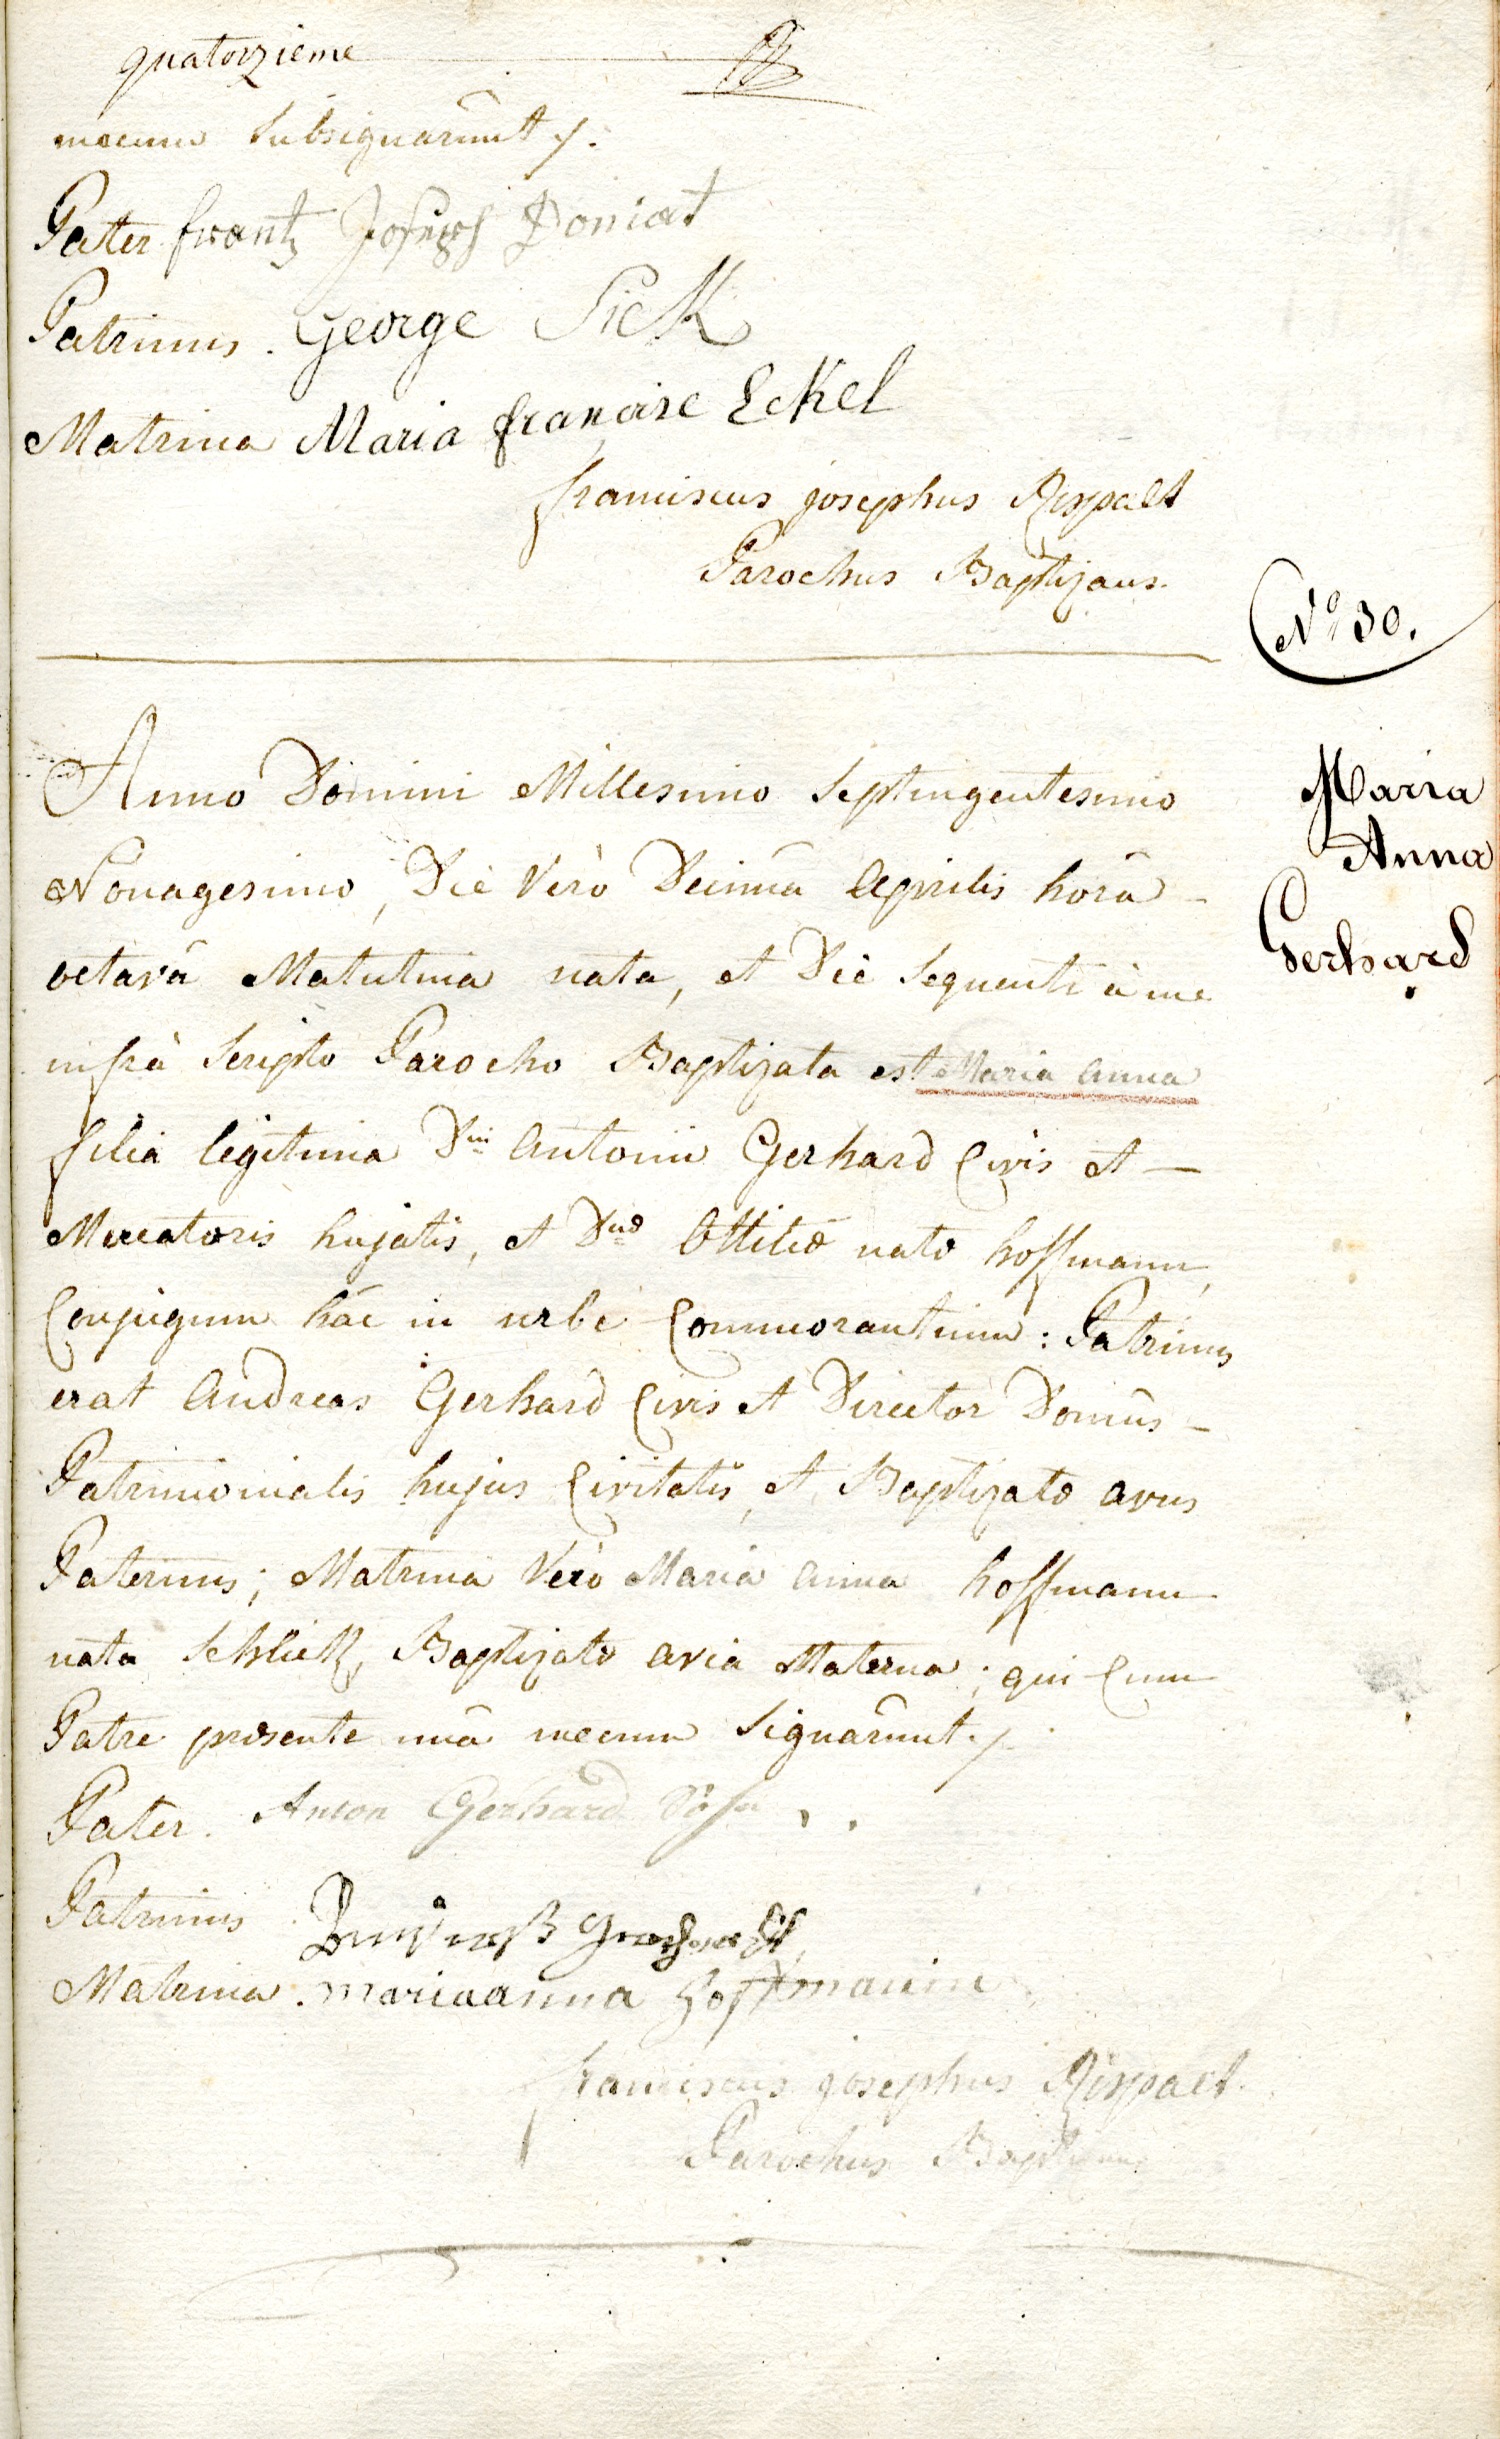 quatorzieme
mecum subsignarunt ⁊.
Pater frantz Joseph Doniat
Patrinus. George Sick
Matrina Maria francise Eckel
franciscus josephus Rispalt
Parochus Baptizans.
N° 30.
Anno Domini Millesimo Septingentesimo
Nonagesimo, Die Verò Decimâ aprilis horâ -
octavâ Matutina nata, et Die Sequenti à me
infrà Scripto Parocho Baptizata est Maria anna
filia legitima Dni antonii Gerhard Civis et —
Mercatoris hujatis, et Dnæ Ottiliæ natæ hoffmann,
Conjugum hâc in urbe Commorantium: Patrinus
erat andreas Gerhard Civis et Director Domûs -
Patrimonialis hujus Civitatis, et Baptizatæ avus
Paternus; Matrina Verò Maria anna hoffmann
nata Schlick, Baptizatæ avia Materna; qui Cum
Patre præsente unâ mecum Signarunt ⁊.
Pater. Anton Gerhard
Patrinus
Matrina. mariaanna hoffmanin
franciscus josephus Rispalt.
Parochus Baptizans
Maria
Anna
Gerhard